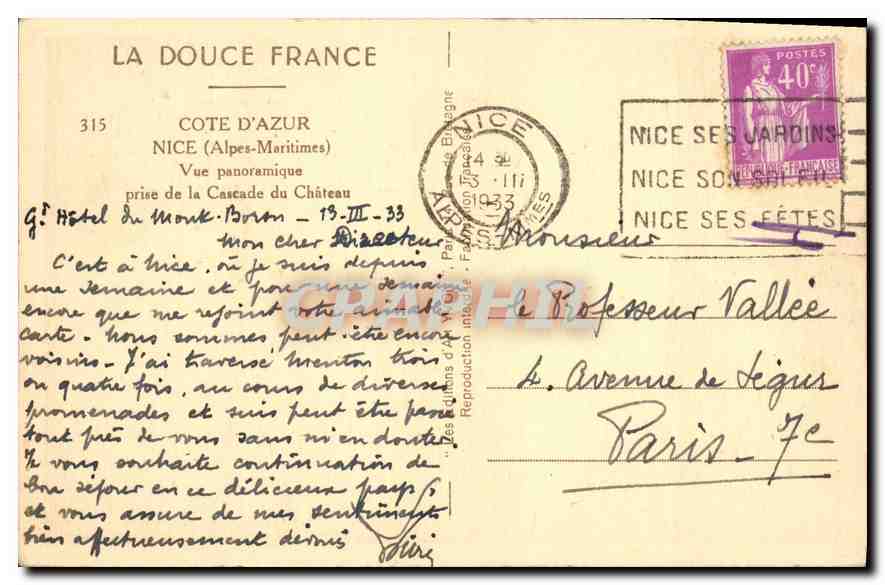 LA DOUCE FRANCE
315 COTE D'AZUR
NICE (Alpes-Maritimes)
Vue panoramique
prise de la Cascade du Château
Gd Hôtel du Mont-Boron - 13-III-33
Mon cher Directeur
C'est à Nice, où je suis depuis
une semaine et pour une semaine
encore que me rejoint votre aimable
carte. Nous sommes peut-être encore
voisins. J'ai traversé Menton trois
ou quatre fois, au cours de diverses
promenades et suis peut être passé
tout près de vous sans m'en douter
Je vous souhaite continuation de
bon séjour en ce délicieux pays,
et vous assure de mes sentiments
bien affectueusement dévoués
"Les Editions d'Art
Reproduction interdite - Fabrication Française
NICE
13 III
1933
ALPES MMES
POSTES
40c
REPUBLIQUE FRANÇAISE
NICE SES JARDINS
NICE SON SOLEIL
NICE SES FÊTES
Monsieur
le Professeur Vallée
4. Avenue de Ségur
Paris - 7e
CPAPHIL